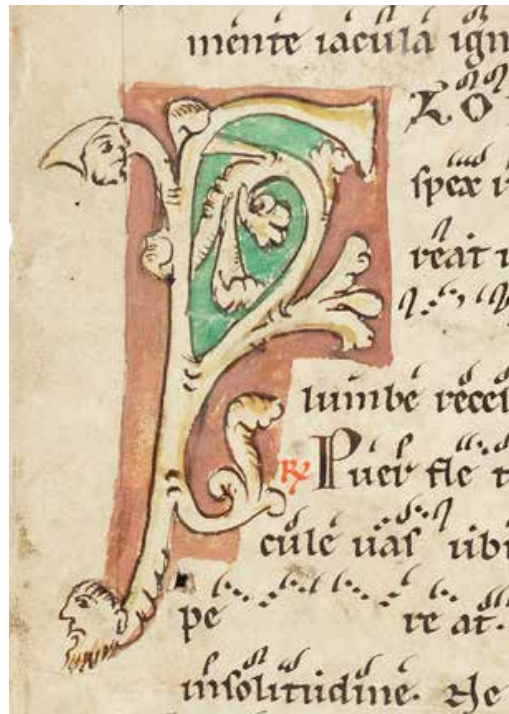 mente iacula ign
P RO
spex i
reat
lumbe reces
℞ Puer fle t
cule uas ubi
pe re at.
insolitudine.